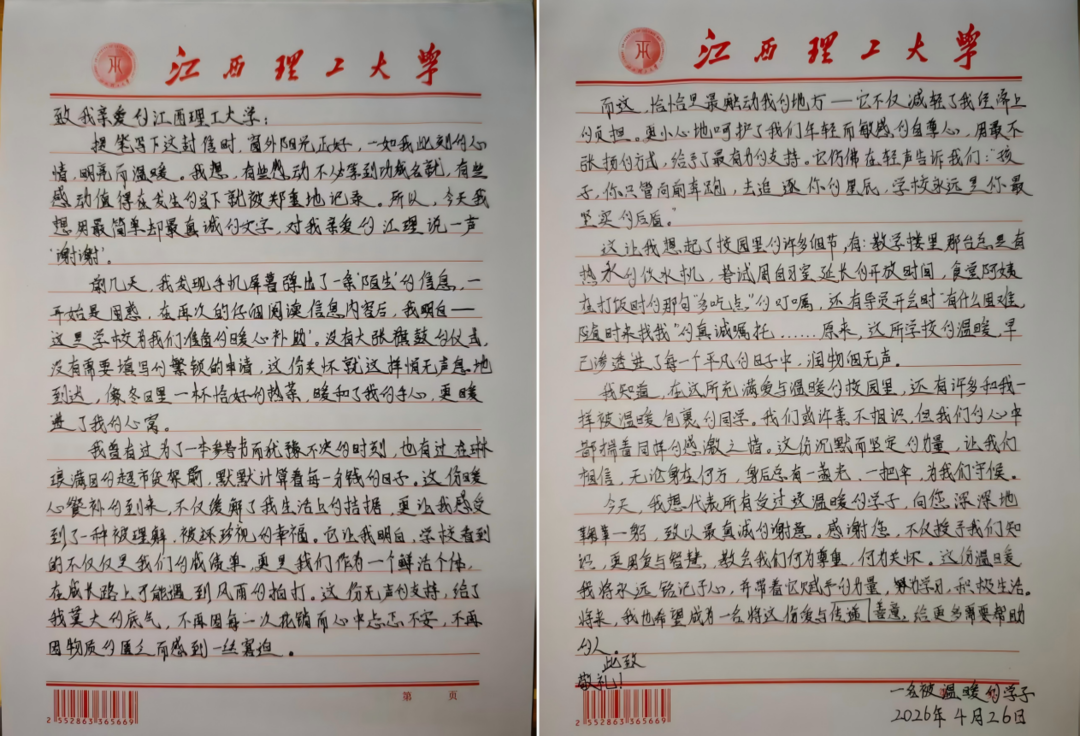 江西理工大学
致我亲爱的江西理工大学：
提笔写下这封信时，窗外阳光正好，一如我此刻的心
情，明亮而温暖。我想，有些感动不必等到功成名就，有些
感动值得在发生的当下就被郑重地记录。所以，今天我
想用最简单却最真诚的文字，对我亲爱的江理说一声
"谢谢"。
前几天，我发现手机屏幕弹出了一条"陌生"的信息，一
开始是困惑，在再次的仔细阅读信息内容后，我明白——
这是学校为我们准备的"暖心补助"。没有大张旗鼓的仪式，
没有需要填写的繁琐的申请，这份关怀就这样悄无声息地
到达，像冬日里一杯恰好的热茶，暖和了我的手心，更暖
进了我的心窝。
我曾有过为了一本参考书而犹豫不决的时刻，也有过在琳
琅满目的超市货架前，默默计算着每一分钱的日子。这份暖
心餐补的到来，不仅缓解了我生活上的拮据，更让我感受
到了一种被理解，被珍视的幸福。它让我明白，学校看到
的不仅仅是我们的成绩单，更是我们作为一个鲜活个体，
在成长路上可能遇到风雨的拍打。这份无声的支持，给了
我莫大的底气，不再因每一次花销而心中忐忑不安，不再
因物质的匮乏而感到一丝窘迫。
第 页
2 552863 365669
江西理工大学
而这，恰恰是最触动我的地方——它不仅减轻了我经济上
的负担。更小心地呵护了我们年轻而敏感的自尊心，用最不
张扬的方式，给予了最有力的支持。它仿佛在轻声告诉我们："孩
子，你只管向前奔跑，去追逐你的星辰，学校永远是你最
坚实的后盾。"
这让我想起了校园里的许多细节，有：教学楼里那台总是有
热水的饮水机，考试周自习室延长的开放时间，食堂阿姨
在打饭时的那句"多吃点"的叮嘱，还有导员开会时"有什么困难，
随时来找我"的真诚嘱托.......原来，这所学校的温暖，早
已渗透进了每一个平凡的日子中，润物细无声。
我知道，在这所充满爱与温暖的校园里，还有许多和我一
样被温暖包裹的同学。我们或许素不相识，但我们的心中
都揣着同样的感激之情。这份沉默而坚定的力量，让我们
相信，无论身在何方，身后总有一盏光，一把伞，为我们守候。
今天，我想代表所有受过这温暖的学子，向您深深地
鞠一躬，致以最真诚的谢意。感谢您，不仅授予我们知
识，更用爱与智慧，教会我们何为尊重，何为关怀。这份温暖
我将永远铭记于心，并带着它赋予的力量，努力学习，积极生活。
将来，我也希望成为一名将这份爱与传递善意，给更多需要帮助
的人。
此致
敬礼！
一名被温暖的学子
2026年4月26日
2 552863 365669